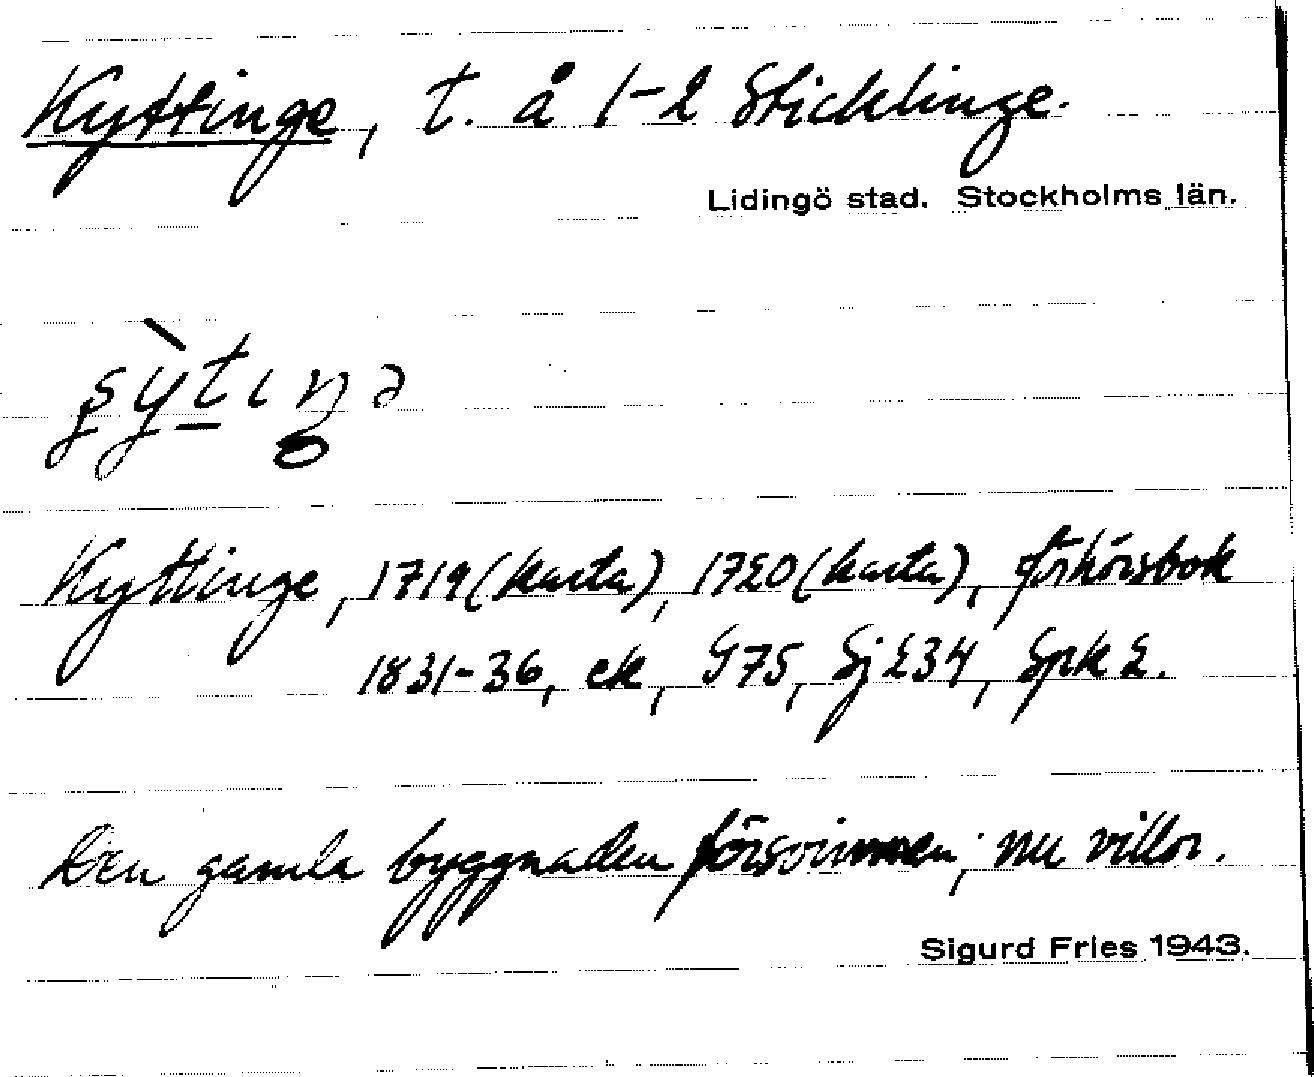 Kyttinge, t. å 1-2 Sticklinge.
Lidingö stad. Stockholms län.
Kyttinge, 1719 (karta), 1720 (karta), förhörsbok
1831-36, ek, G75, Sj 234, Spk 2.
Den gamla byggnaden försvunnen; nu villor.
Sigurd Fries 1943.